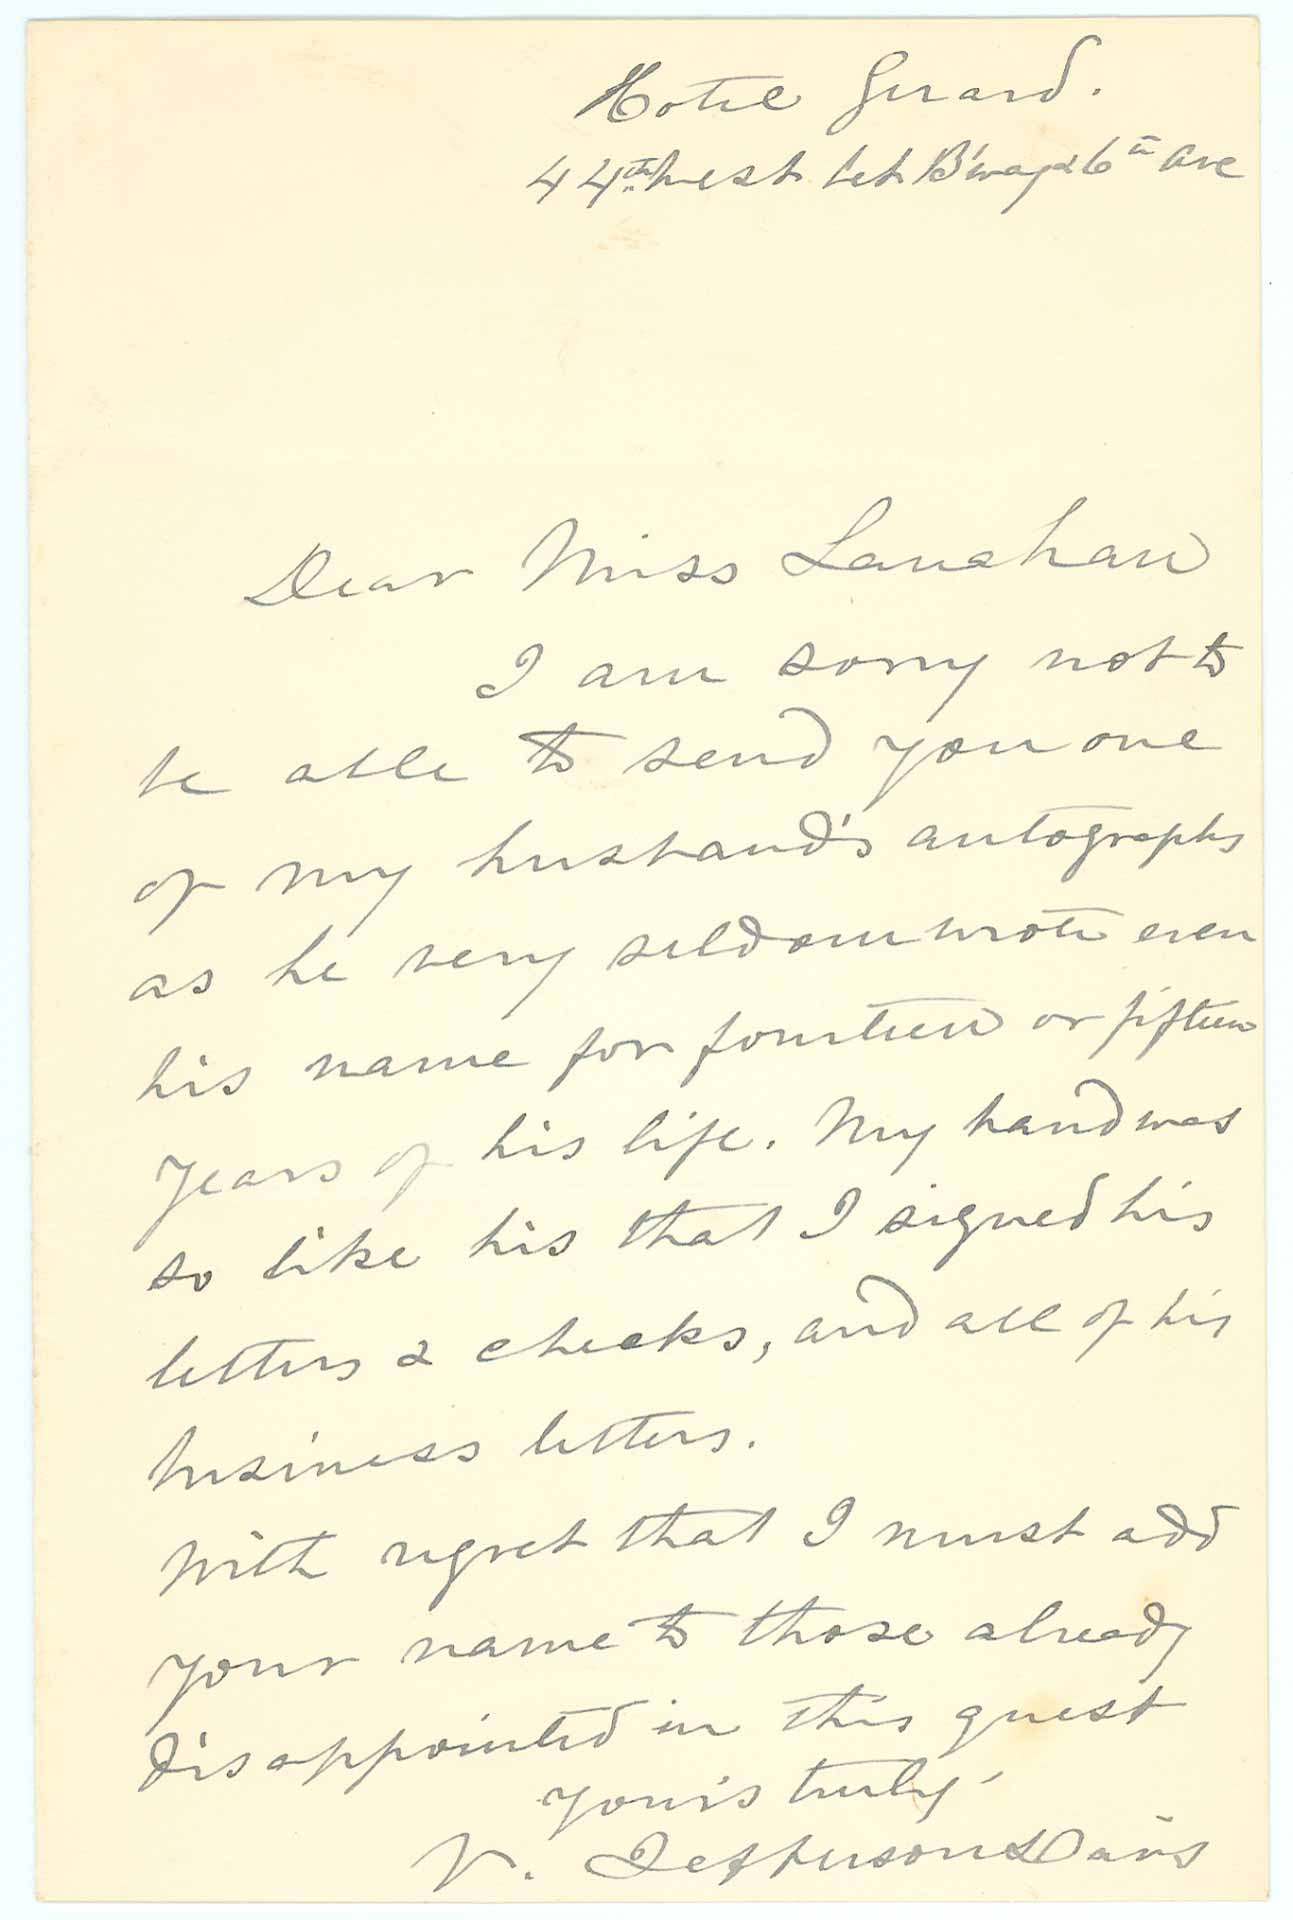 Hotel Gerard.
44th West bet B'way & 6th Ave
Dear Miss Lanahan
I am sorry not to
be able to send you one
of my husband's autographs
as he very seldom wrote even
his name for fourteen or fifteen
years of his life. My hand was
so like his that I signed his
letters & checks, and all of his
business letters.
With regret that I must add
your name to those already
disappointed in this quest
Yours truly
V. Jefferson Davis